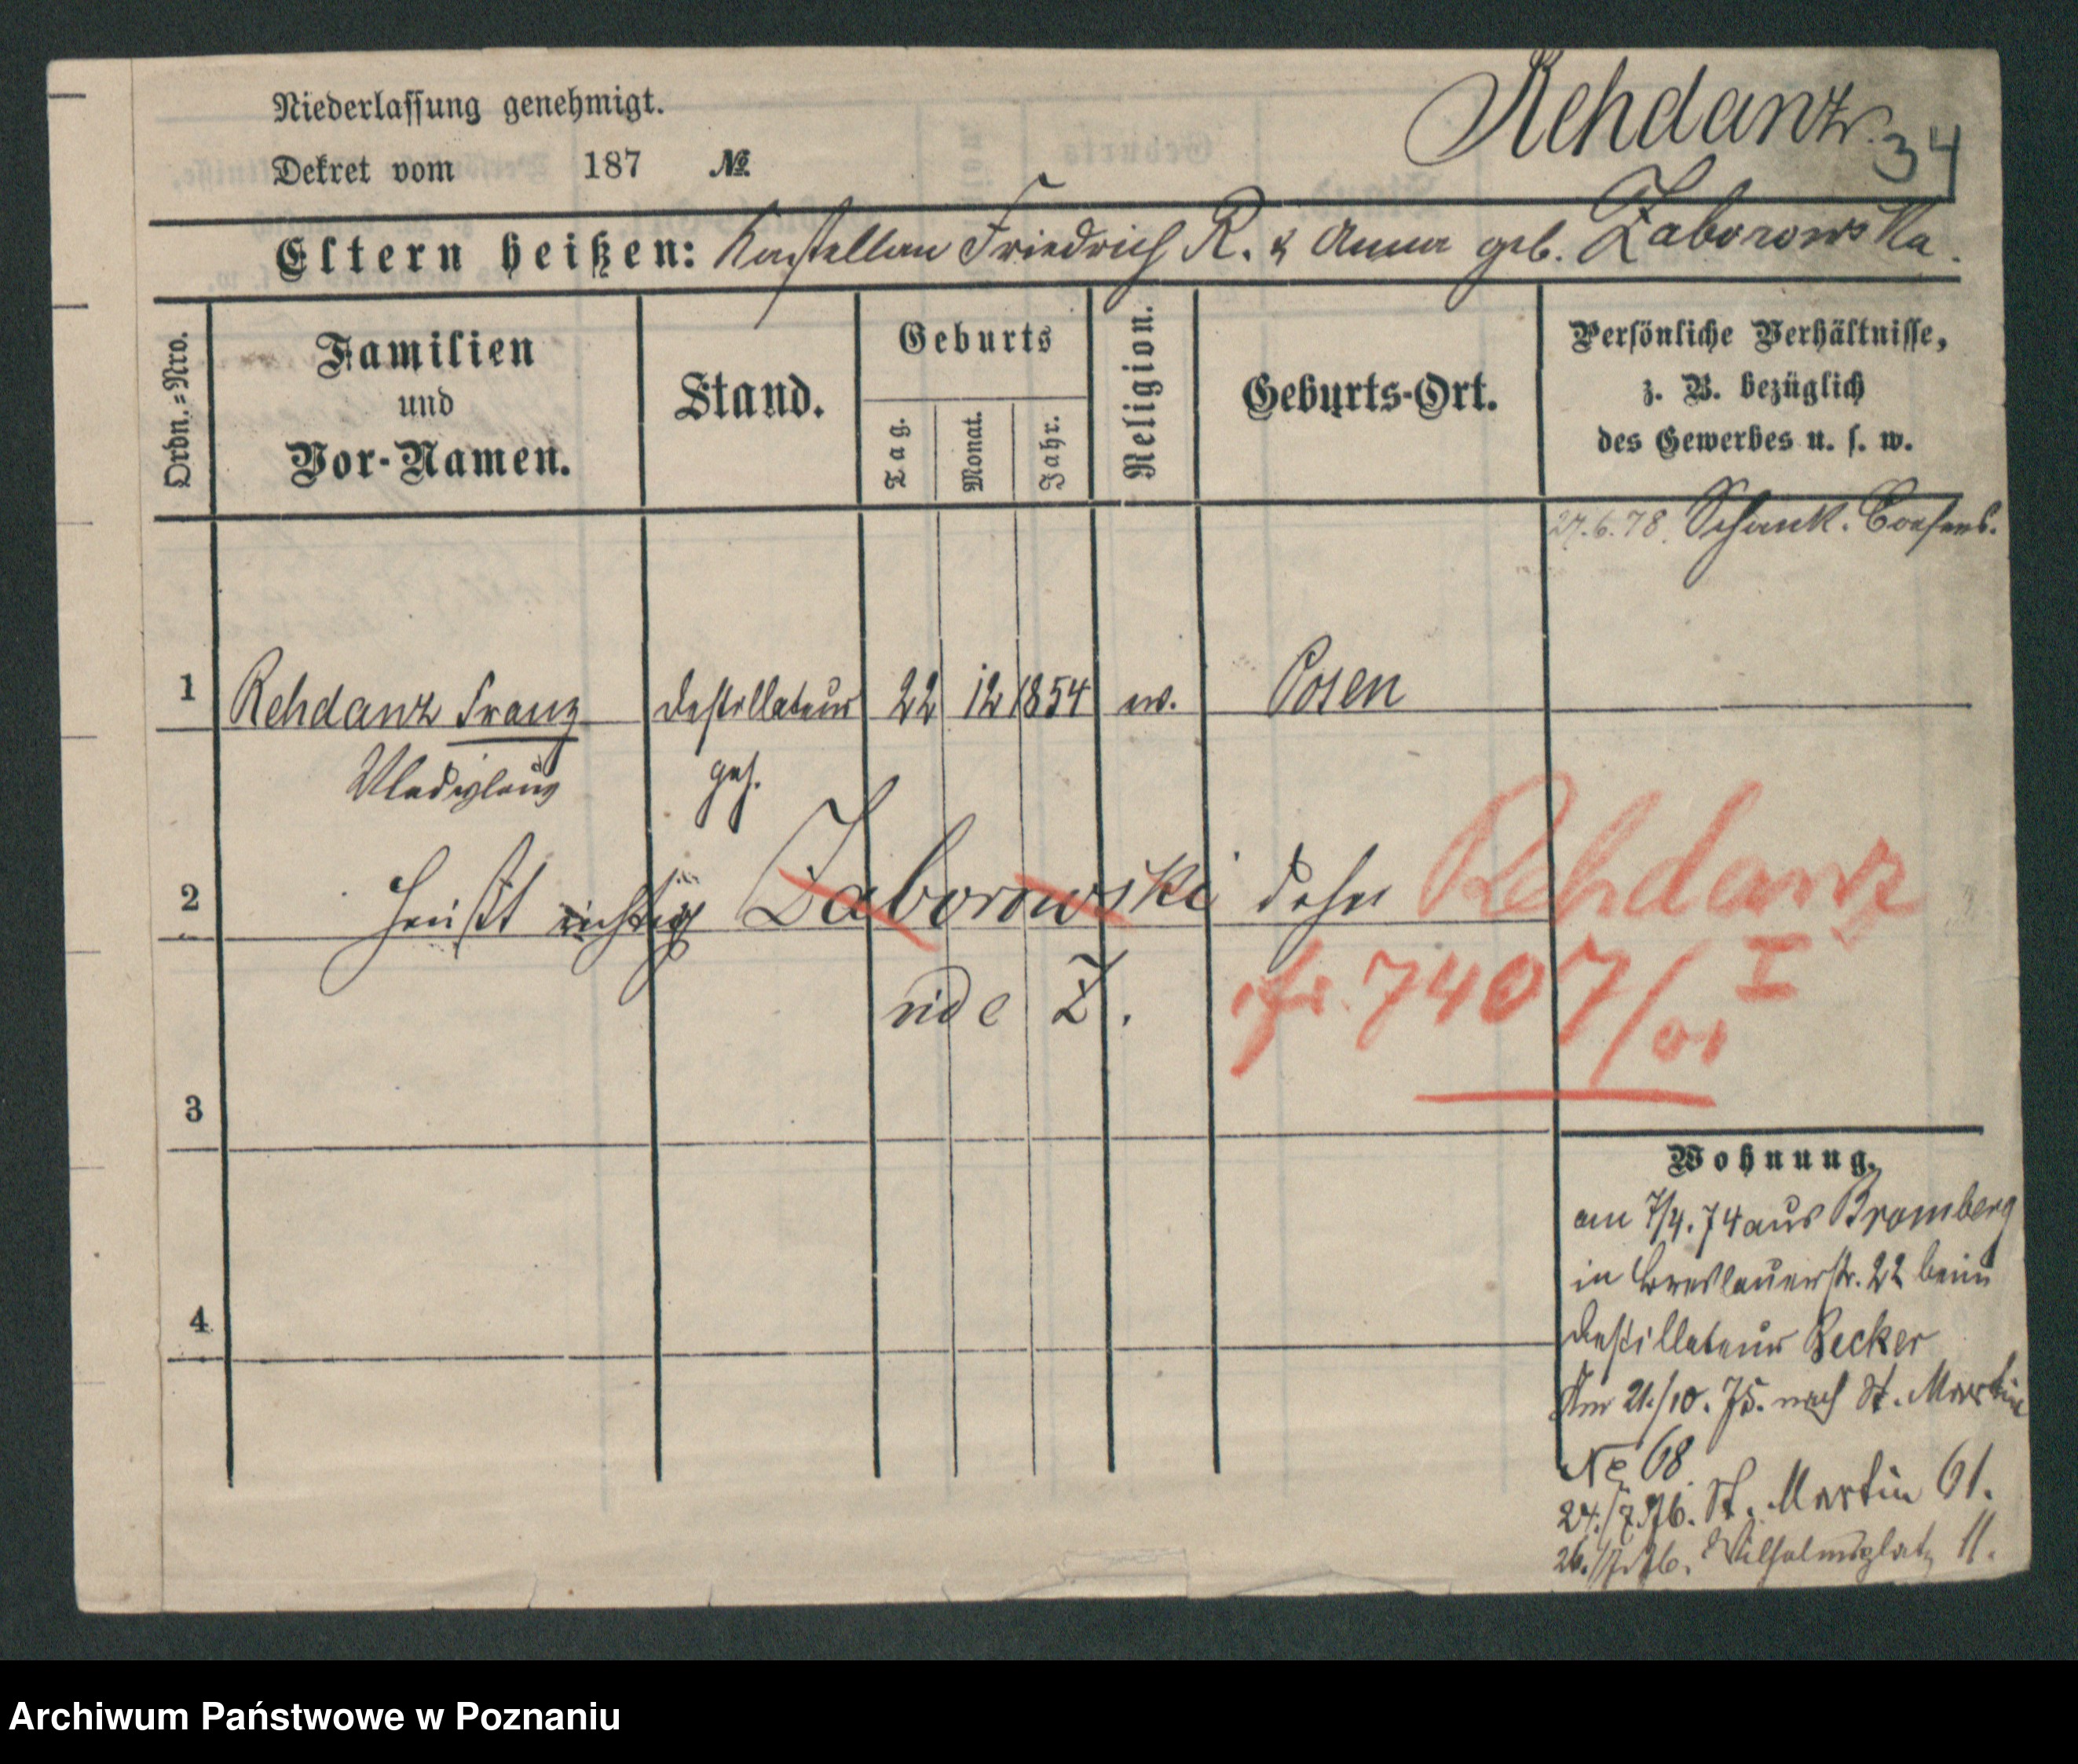 Niederlassung genehmigt.
Rehdanz.
34
Dekret vom 187 №
Eltern heißen: Kastellan Friedrich R. & Anna geb. Zaborowska.
Ordn.-Nro.
Familien
und
Vor-Namen.
Stand.
Geburts
Tag.
Monat.
Jahr.
Religion.
Geburts-Ort.
Persönliche Verhältnisse,
z. B. bezüglich
des Gewerbes u. s. w.
27.6.78. Schank. Consens.
1 Rehdanz Franz Destillateur 22 12 1854 ev. Posen
Vladislaus geh.
2 heißt richtig Zaborowski daher Rehdanz
vide Z. cfr. 7407/01 I
3
4
Wohnung.
am 7/4. 74 aus Bromberg
in Breslauerstr. 22 beim
Destillateur Becker
Am 21/10. 75. nach St. Martin
№ 68.
24./7.76. St. Martin 61.
26./7.76. Wilhelmsplatz 11.
Archiwum Państwowe w Poznaniu